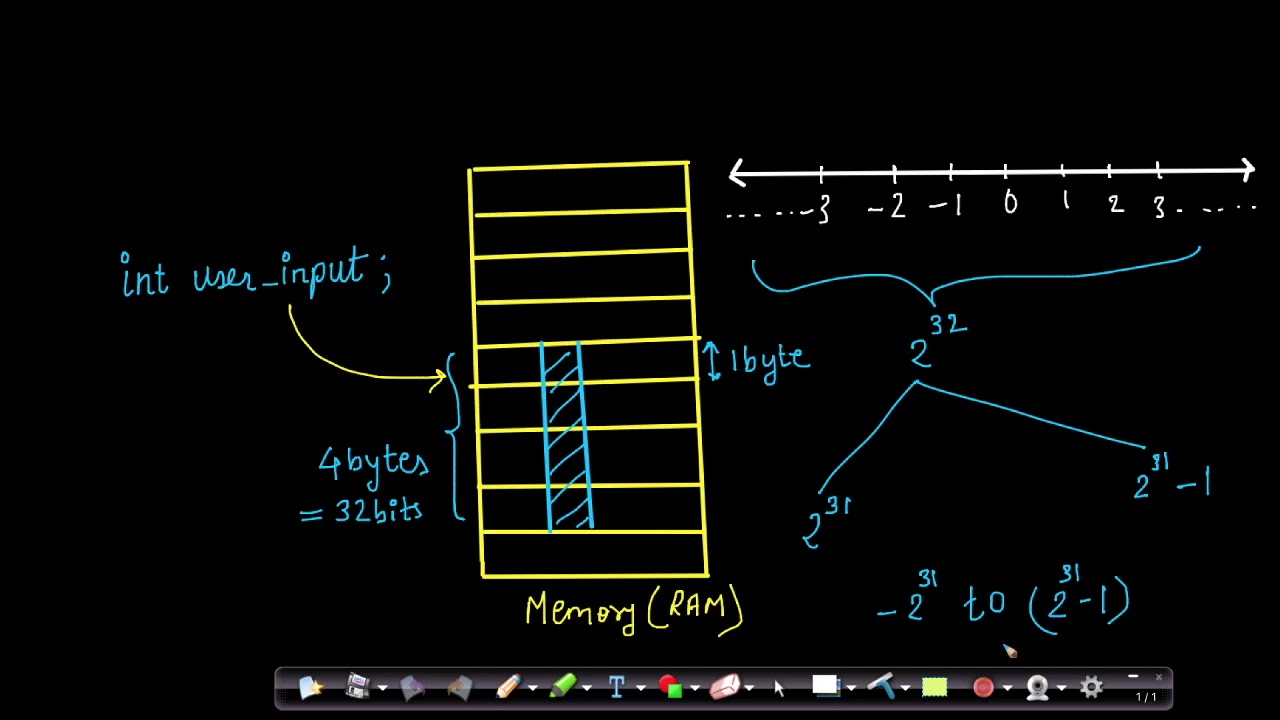 -3 -2 -1 0 1 2 3
int user_input;
2^32
1byte
4bytes
= 32bits
2^31
2^31 -1
-2^31 to (2^31 -1)
Memory (RAM)
T
1/1